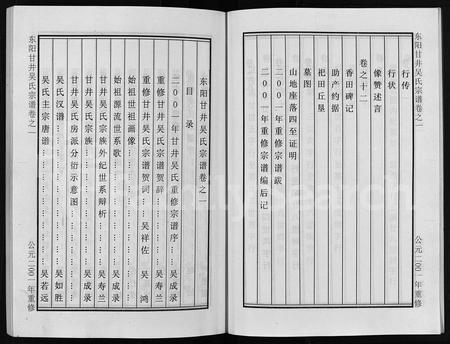 行传
行状
像赞述言
卷之十二
香田碑记
助产约据
祀田丘垦
墓图
山地座落四至证明
二00一年重修宗谱跋
二00一年重修宗谱编后记
东阳甘井吴氏宗谱卷之一
公元二00一年重修
东阳甘井吴氏宗谱卷之一
目录
二00一年甘井吴氏重修宗谱序……吴成录
重修甘井吴氏宗谱贺辞……吴寿兰
重修甘井吴氏宗谱贺词……吴祥佐 吴鸿
始祖世祖画像……
始祖源流世系歌……吴成录
甘井吴氏宗族外纪世系辩析……吴寿兰
甘井吴氏宗族……吴成录
甘井吴氏房派分衍示意图……
吴氏汉谱……吴如胜
吴氏主宗唐谱……吴若远
东阳甘井吴氏宗谱卷之一
公元二00一年重修